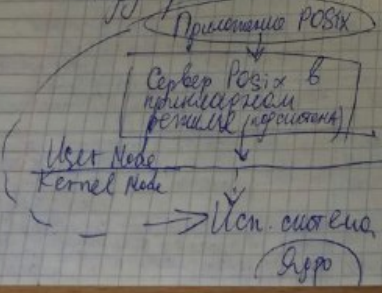 Приложение POSIX
Сервер POSIX в
прикладном
режиме (подсистема)
User Mode
Kernel Mode
Исп. система
Ядро